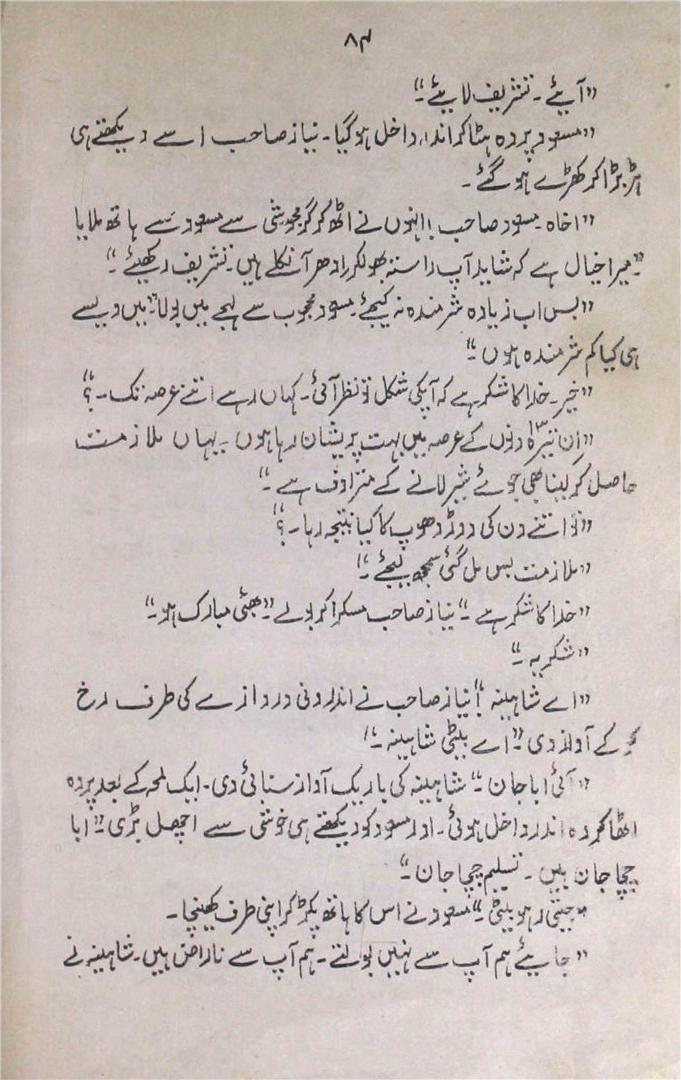 ۸۴
”آیئے ۔ تشریف لایئے۔“
”مسعود پردہ ہٹا کر اندر داخل ہو گیا۔ نیاز صاحب اسے دیکھتے ہی
ہڑبڑا کر کھڑے ہو گئے۔
”اخاہ۔ مسعود صاحب! انہوں نے اٹھ کر گرمجوشی سے مسعود سے ہاتھ ملایا
”میرا خیال ہے کہ شاید آپ راستہ بھولکر ادھر آ نکلے ہیں۔ تشریف رکھیئے۔“
”بس اب زیادہ شرمندہ نہ کیجئے۔ مسعود محجوب سے لہجے میں بولا ”میں ویسے
ہی کیا کم شرمندہ ہوں۔“
”خیر۔ خدا کا شکر ہے کہ آپکی شکل تو نظر آئی۔ کہاں رہے اتنے عرصہ تک۔؟“
”ان تیرہ ۱۳ دنوں کے عرصہ میں بہت پریشان رہا ہوں ۔ یہاں ملازمت
حاصل کر لینا بھی جوئے شیر لانے کے مترادف ہے۔“
”تو اتنے دن کی دوڑ دھوپ کا کیا نتیجہ رہا۔؟“
”ملازمت بس مل گئی سمجھ لیجئے۔“
”خدا کا شکر ہے۔“ نیاز صاحب مسکرا کر بولے ”بھئی مبارک ہو۔“
”شکریہ۔“
”اے شاہینہ“! نیاز صاحب نے اندرونی دروازے کی طرف رخ
کر کے آواز دی ”اے بیٹی شاہینہ۔“
”آئی ابا جان۔“ شاہینہ کی باریک آواز سنائی دی۔ ایک لمحہ کے بعد پردہ
اٹھا کر وہ اندر داخل ہوئی۔ اور مسعود کو دیکھتے ہی خوشی سے اچھل پڑی ”ابا
چچا جان ہیں ۔ تسلیم چچا جان۔“
”جیتی رہو بیٹی۔“ مسعود نے اس کا ہاتھ پکڑ کر اپنی طرف کھینچا۔
”جایئے ہم آپ سے نہیں بولتے۔ ہم آپ سے ناراض ہیں۔ شاہینہ نے